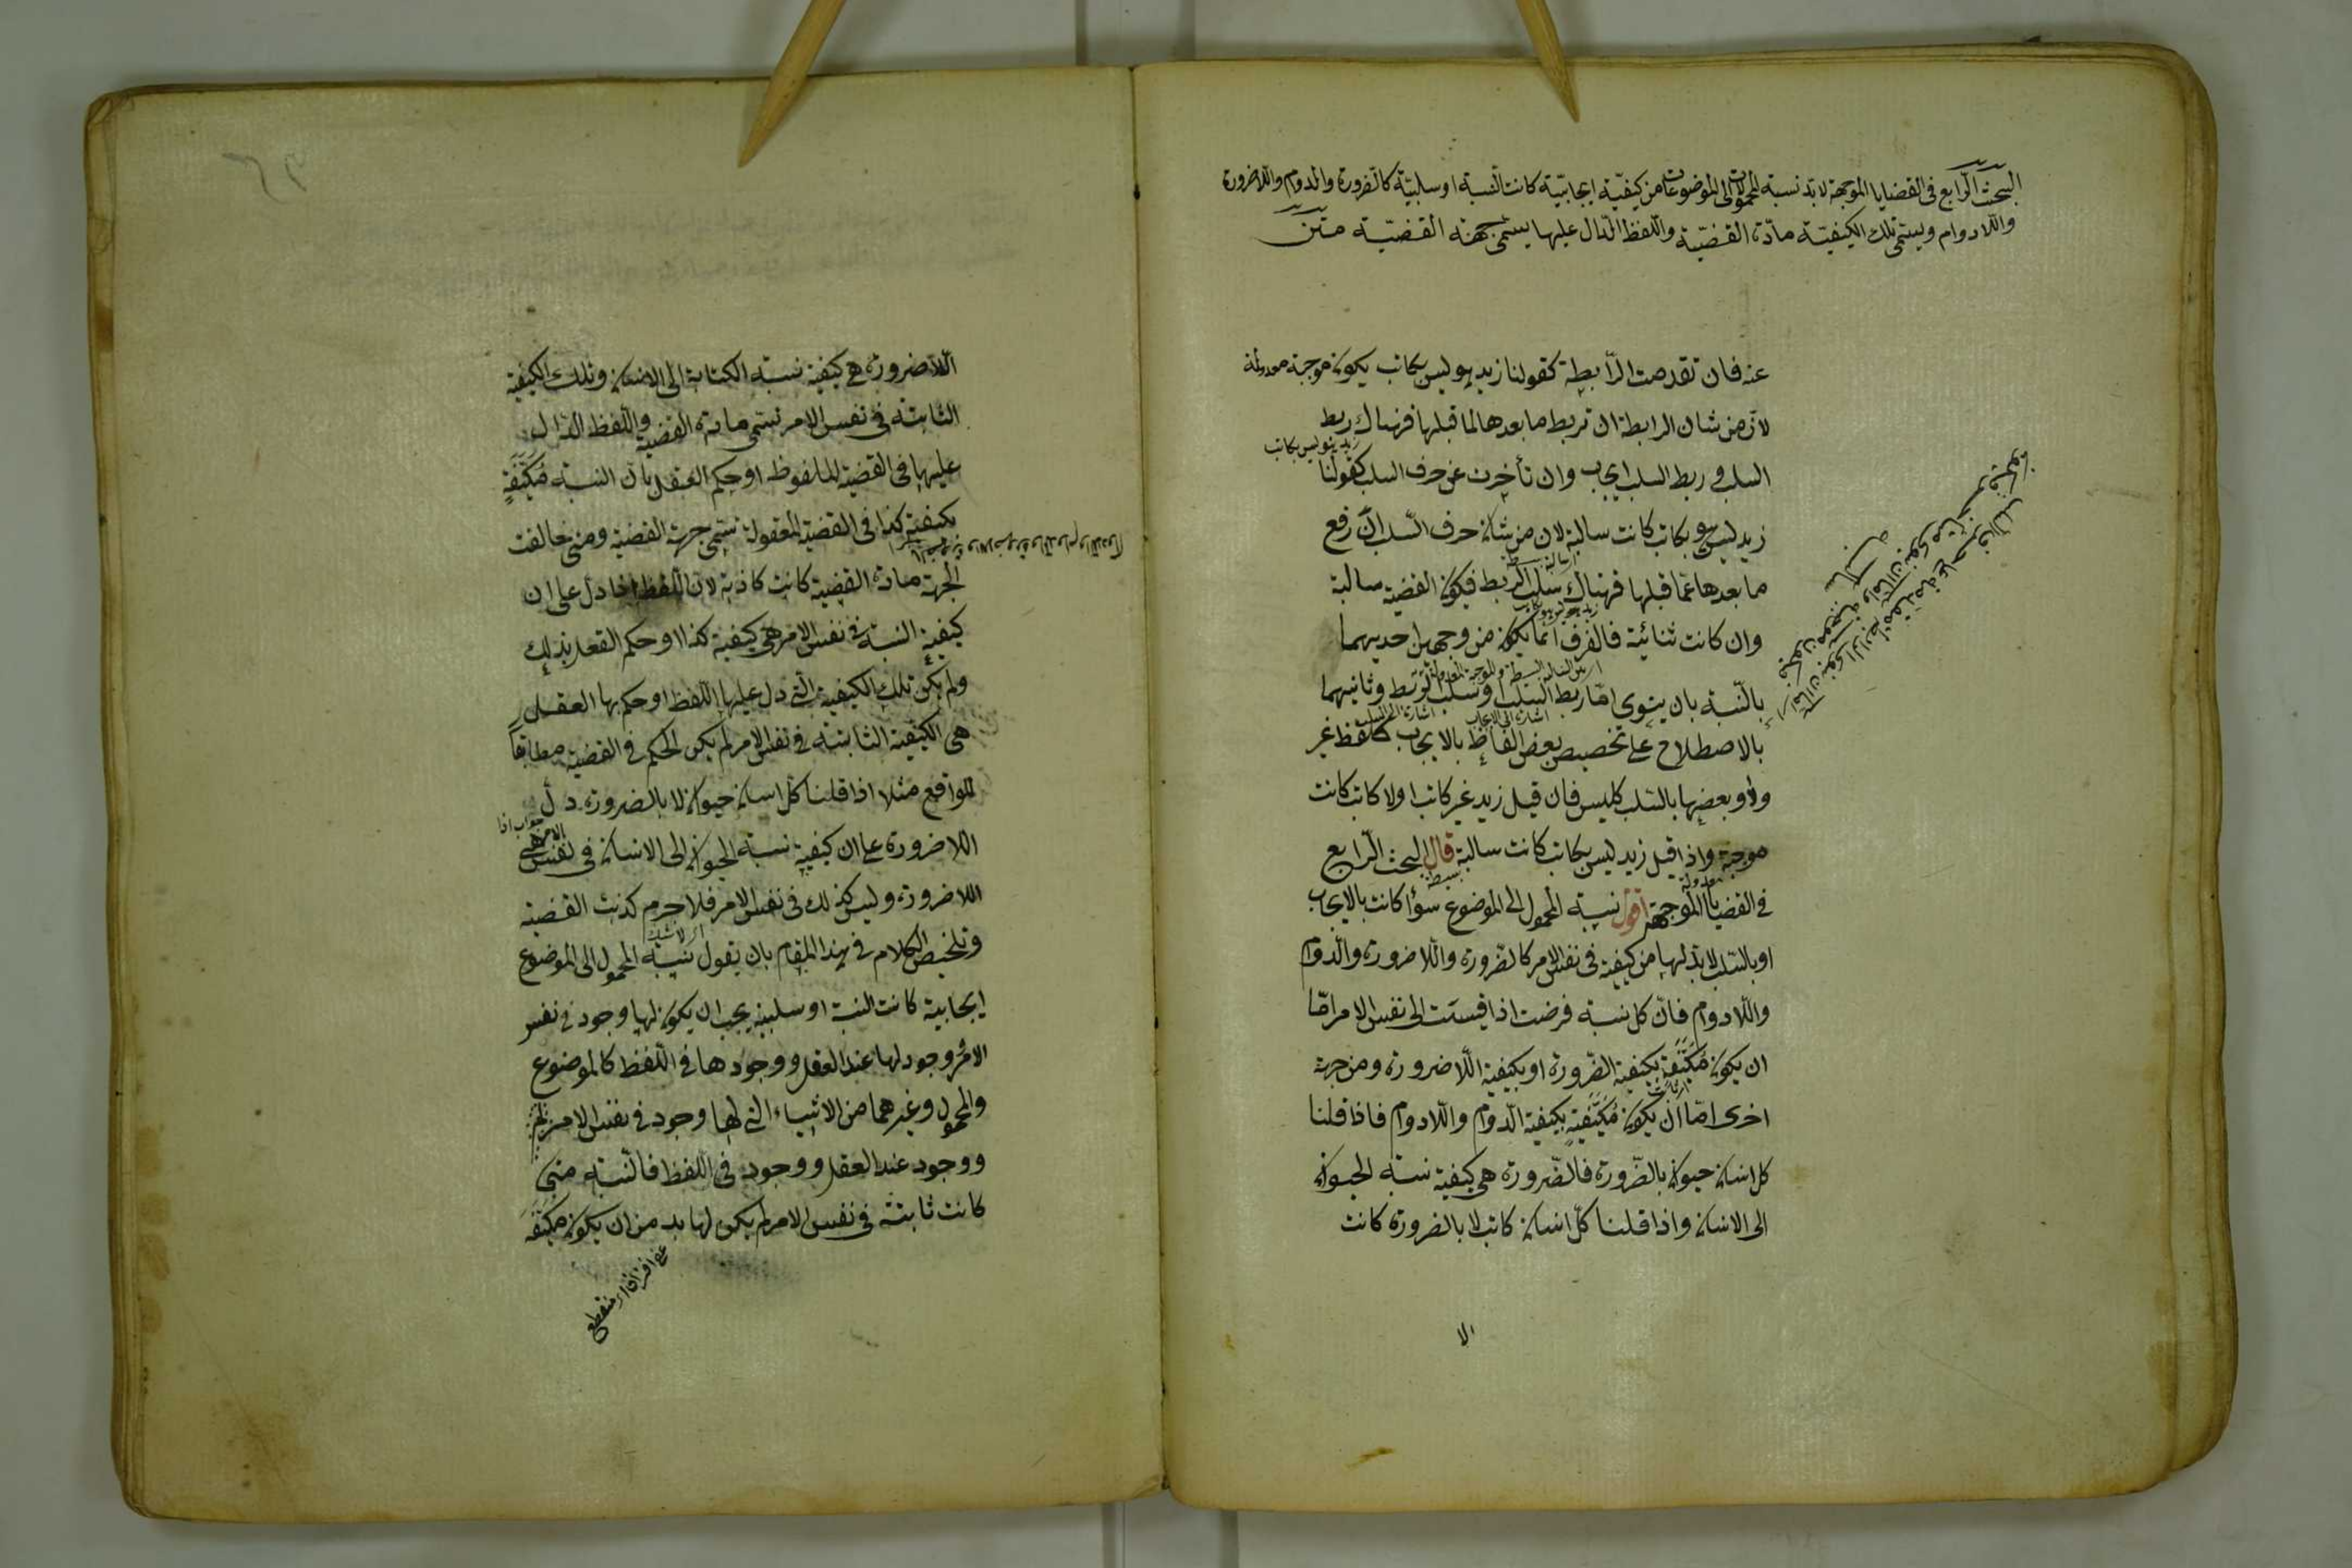 البحث الرابع فى القضايا الموجهة لا بد لنسبة المحمولات الى الموضوعات من كيفيّة ايجابيّة كانت النّسبة او سلبيّة كالضّرورة والدوام واللاضرورة
واللّادوام ويسمّى تلك الكيفيّة مادّة القضيّة واللّفظ الدّال عليها يسمّى جهة القضيّة متن
عنه فان تقدمت الرّابطة كقولنا زيد هو ليس بكاتب يكون موجبة معدولة
لان من شان الرابطة ان تربط ما بعدها لما قبلها فهناك ربط
السلب و ربط السلب ايجاب وان تأخرت عن حرف السلب كقولنا
زيد ليس هو بكاتب كانت سالبة لان من شان حرف السّلب انّ رفع
ما بعدها عما قبلها فهناك سلب الربط فيكون القضية سالبة
وان كانت ثنائية فالفرق انما يكون من وجهين احديهما
بالنّسبة بان ينوى امّا ربط السلب او سلب الربط وثانيهما
بالاصطلاح على تخصيص بعض الفاظ بالايجاب كلفظ غير
ولا وبعضها بالسّلب كليس فان قيل زيد غير كاتب او لا كاتب كانت
موجبة واذا قيل زيد ليس بكاتب كانت سالبة قال البحث الرّابع
فى القضيا الموجهة اقول نسبة المحمول الى الموضوع سوٓا كانت بالايجاب
او بالسّلب لا بد لها من كيفية فى نفس الامر كالضّرورة واللّاضرورة والدّوام
واللّادوام فانّ كل نسبة فرضت اذا قيست الى نفس الامر امّا
ان يكون مُكيَّفة بكيفية الضّرورة او بكيفية اللّاضرورة ومن جهة
اخرى امّا ان يكون مُكيَّفةٍ بكيفية الدّوام واللّادوام فاذا قلنا
كل انسان حيوان بالضّرورة فالضّرورة هى كيفية نسبة الحيوان
الى الانسان واذا قلنا كلّ انسان كاتب لا بالضرورة كانت
الا
اللّاضرورة هى كيفية نسبة الكتابة الى الانسان وتلك الكيفية
الثابتة فى نفس الامر تسمى مادة القضية واللّفظ الدّال
عليها فى القضية الملفوظ او حكم العقل بان النسبة مُكَيَّفَةٍ
بكيفية كذا فى القضية المعقولة تسمى جهة القضية ومتى خالفت
الجهة مادة القضية كانت كاذبة لان اللّفظ اذا دل على ان
كيفية النسبة فى نفس الامر هى كيفية كذا او حكم القعل بذلك
ولم يكن تلك الكيفية التى دل عليها اللّفظ او حكم بها العقل
هى الكيفية الثابتة فى نفس الامر لم يكن الحكم فى القضية مطابقاً
للواقع مثلا اذا قلنا كل انسان حيوان لا بالضرورة دل
اللاضرورة على ان كيفية نسبة الحيوان الى الانسان فى نفس الامر هى
اللاضرورة وليس كذلك فى نفس الامر فلا جرم كذبت القضية
وتلخيص الكلام فى هذا المقام بان يقول نسبة المحمول الى الموضوع
ايجابية كانت النسبة او سلبية يجب ان يكون لها وجود فى نفس
الامر ووجود لها عند العقل ووجودها فى اللّفظ كالموضوع
والمحمول وغيرهما من الاشياء التى لها وجود فى نفس الامر
ووجود عند العقل ووجود فى اللفظ فالنّسبة متى
كانت ثابتة فى نفس الامر لم يكن لها بد من ان يكون مكيّفَة